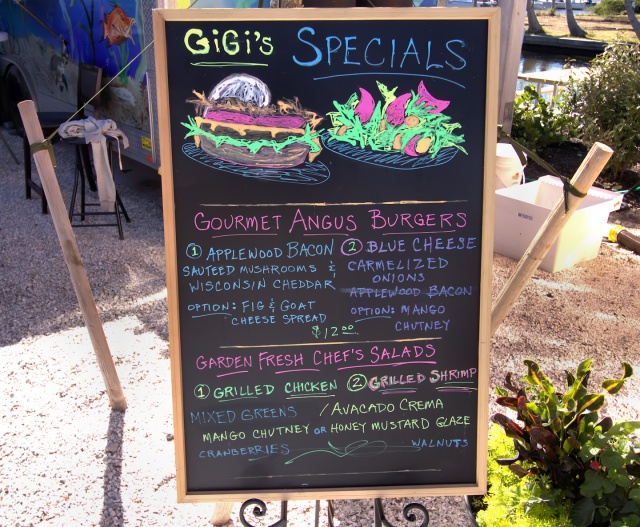 GiGi's SPECIALS
GOURMET ANGUS BURGERS
1 APPLEWOOD BACON
SAUTEED MUSHROOMS &
WISCONSIN CHEDDAR
OPTION: FIG & GOAT
CHEESE SPREAD
2 BLUE CHEESE
CARMELIZED
ONIONS
APPLEWOOD BACON
OPTION: MANGO
CHUTNEY
$12.00
GARDEN FRESH CHEF'S SALADS
1 GRILLED CHICKEN 2 GRILLED SHRIMP
MIXED GREENS / AVACADO CREMA
MANGO CHUTNEY OR HONEY MUSTARD GLAZE
CRANBERRIES WALNUTS